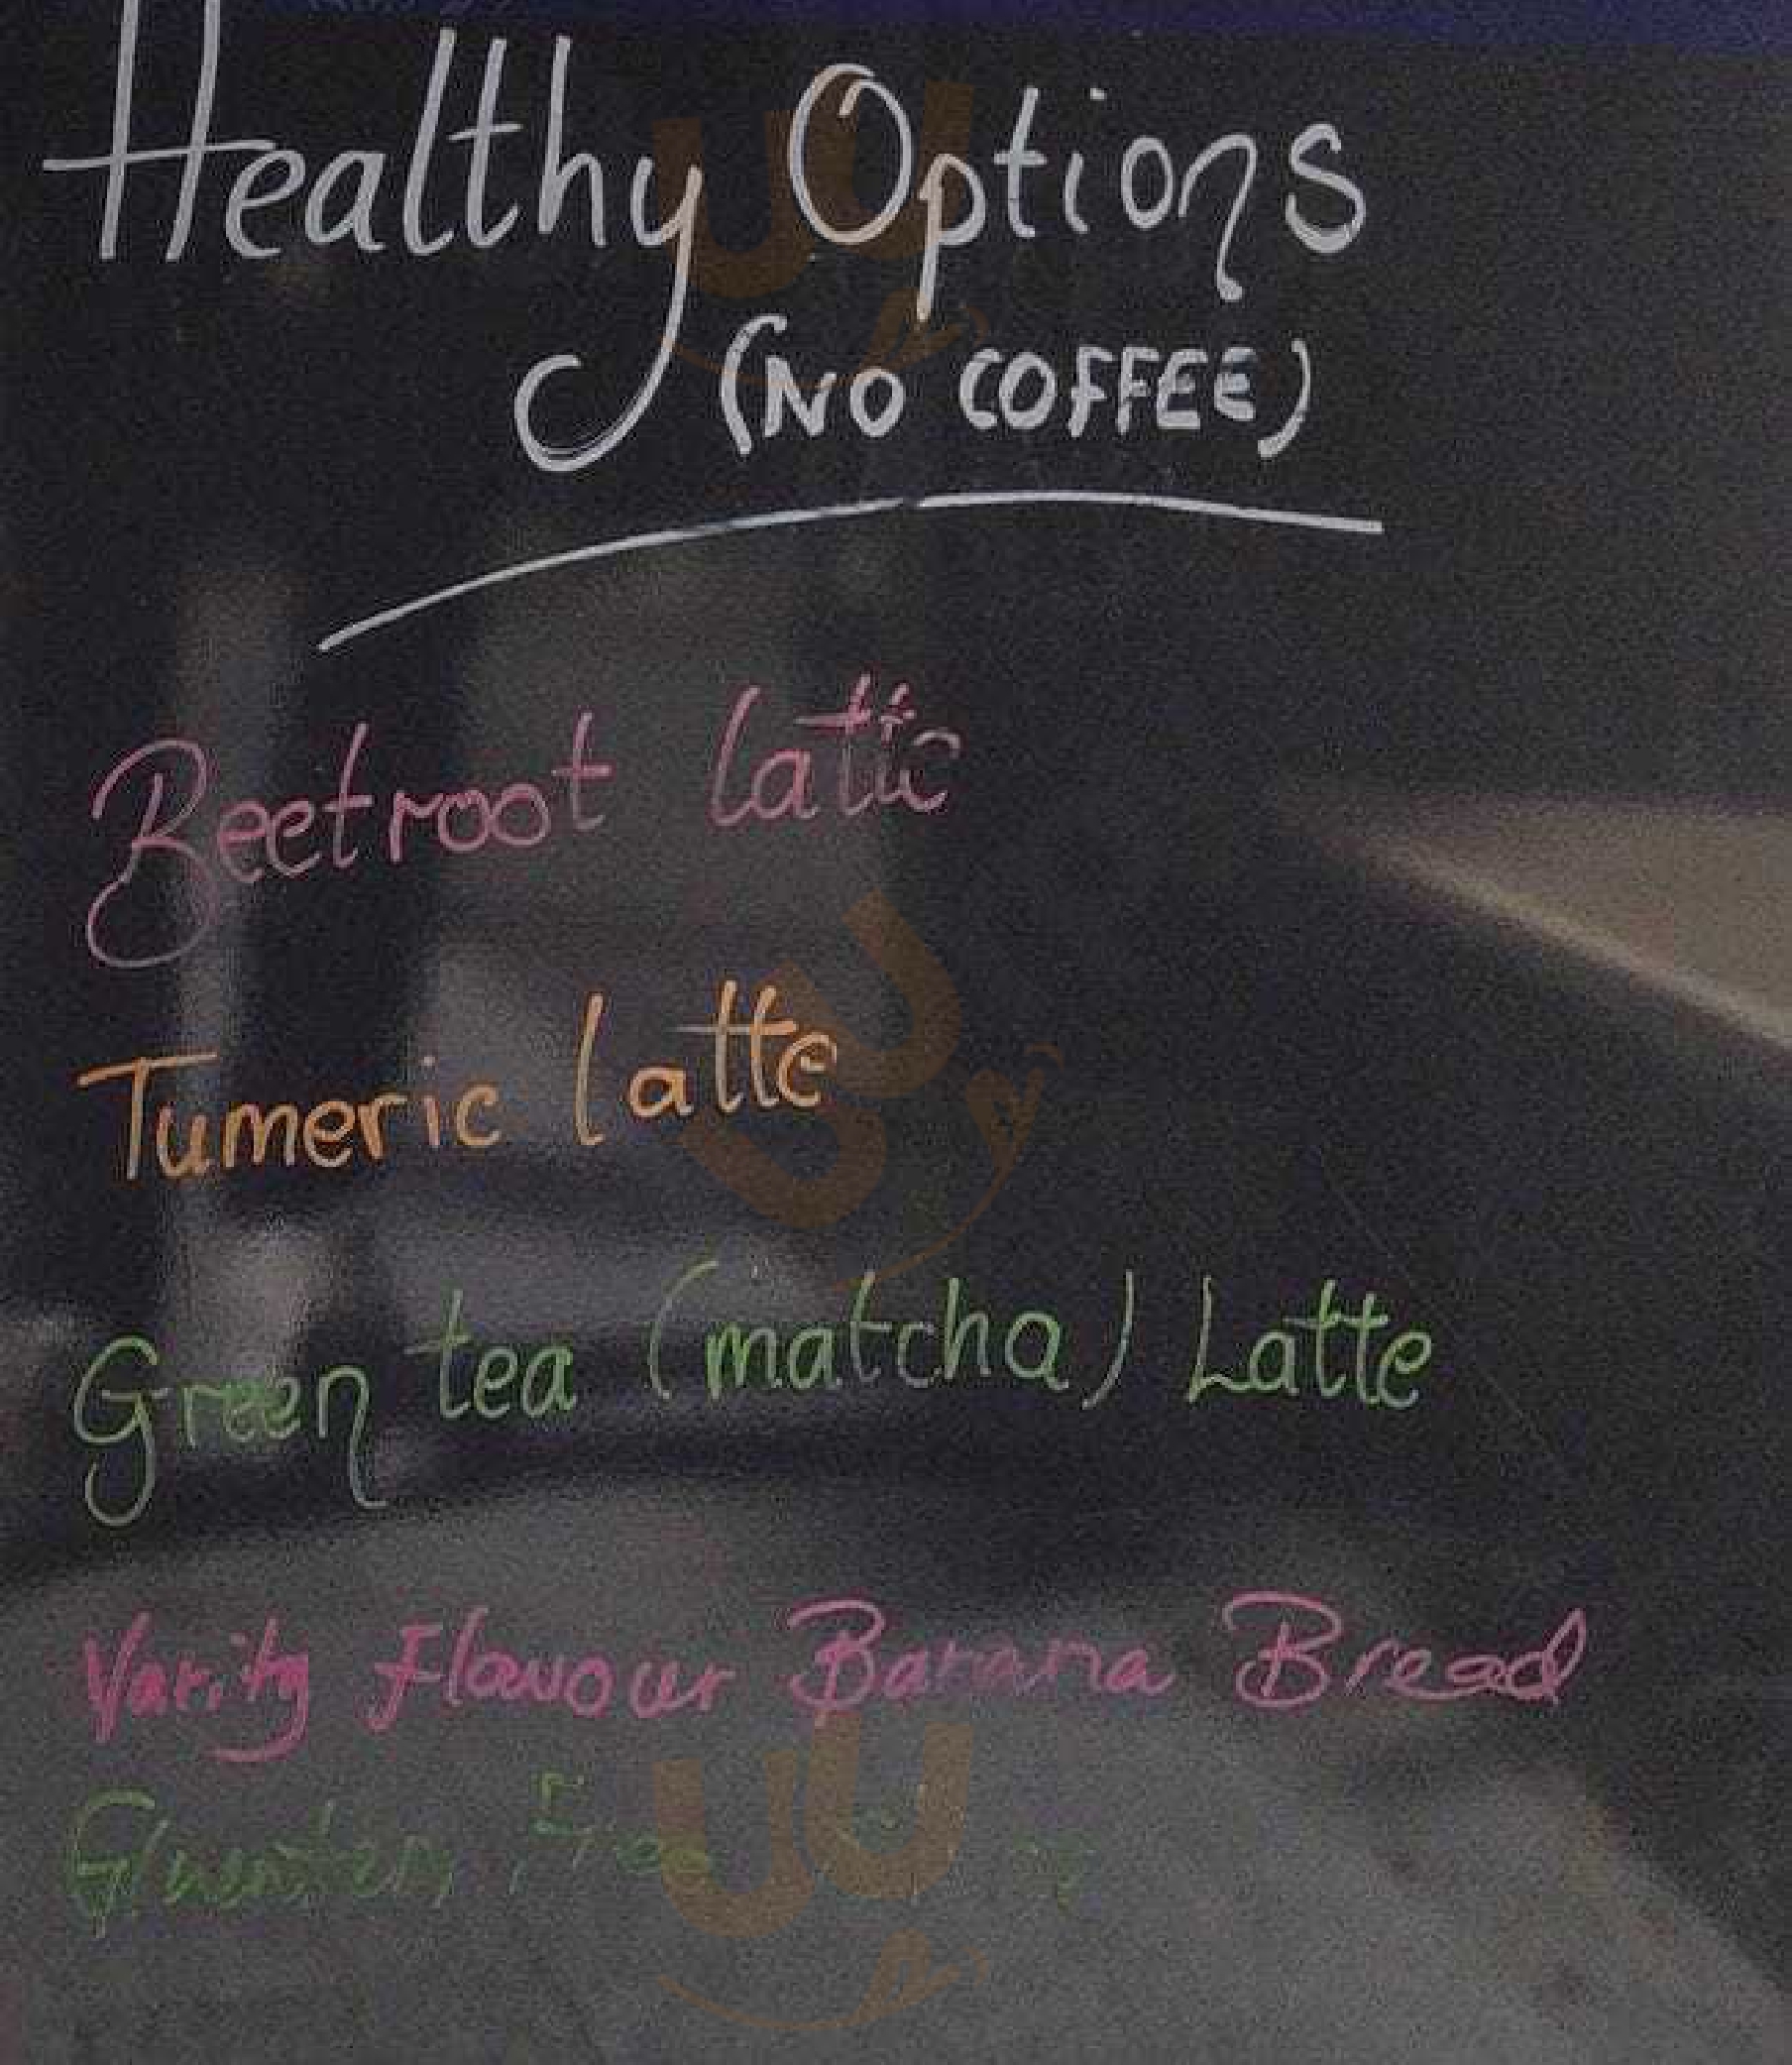 Healthy Options
(NO COFFEE)
Beetroot latte
Tumeric latte
Green tea (matcha) Latte
Varity Flavour Banana Bread
Free